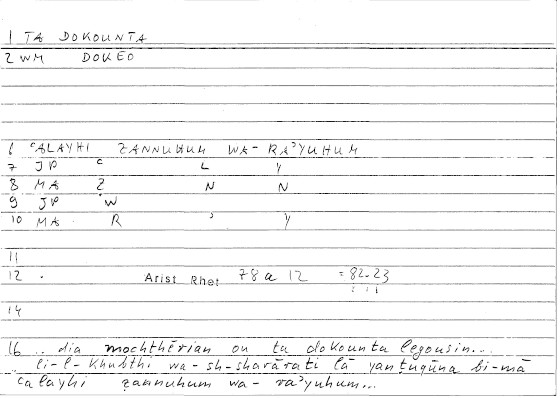 1 TA DOKOUNTA
2 WM DOKEO
6 ʿALAYHI ẒANNUHUM WA-RAʾYUHUM
7 JP ʿ L Y
8 MA Ẓ N N
9 JP W
10 MA R ʾ Y
11
12 . Arist Rhet 78a 12 = 82.23
14
16 .. dia mochthērian ou ta dokounta legousin...
li-l-khubthi wa-sh-sharārati lā yanṭuqūna bi-mā
ʿalayhi ẓannuhum wa-raʾyuhum...